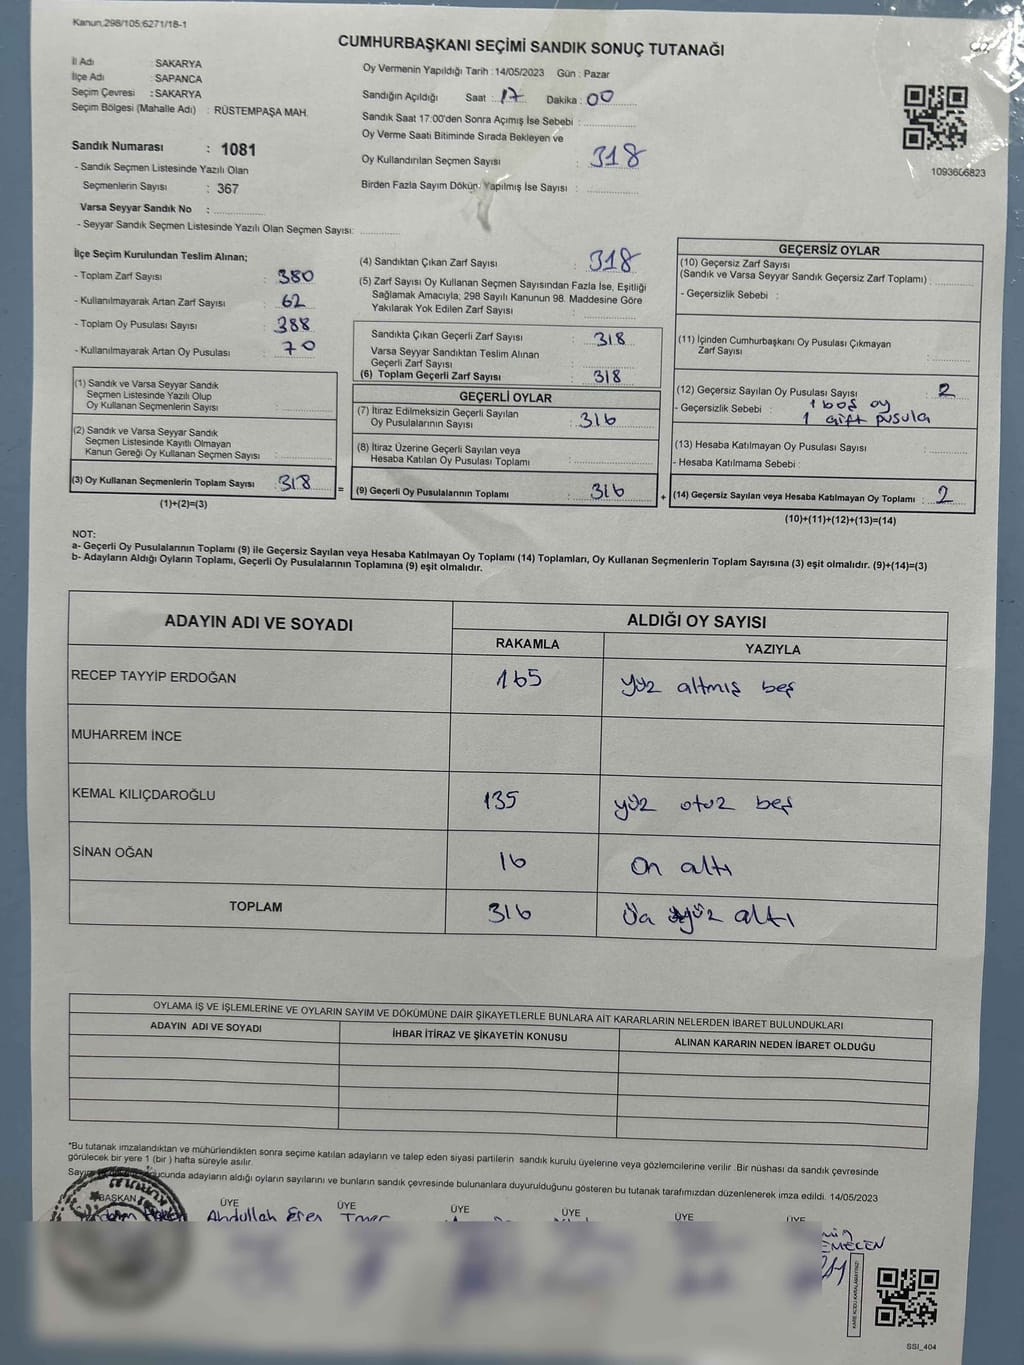 Kanun.298/105;6271/18-1
CUMHURBAŞKANI SEÇİMİ SANDIK SONUÇ TUTANAĞI
İl Adı : SAKARYA
İlçe Adı : SAPANCA
Seçim Çevresi : SAKARYA
Seçim Bölgesi (Mahalle Adı) : RÜSTEMPAŞA MAH.
Sandık Numarası : 1081
- Sandık Seçmen Listesinde Yazılı Olan
Seçmenlerin Sayısı : 367
Varsa Seyyar Sandık No :
- Seyyar Sandık Seçmen Listesinde Yazılı Olan Seçmen Sayısı:
Oy Vermenin Yapıldığı Tarih :14/05/2023 Gün : Pazar
Sandığın Açıldığı Saat : 17 Dakika : 00
Sandık Saat 17:00'den Sonra Açımış İse Sebebi :
Oy Verme Saati Bitiminde Sırada Bekleyen ve
Oy Kullandırılan Seçmen Sayısı : 318
Birden Fazla Sayım Döküm Yapılmış İse Sayısı :
1093606823
İlçe Seçim Kurulundan Teslim Alınan;
- Toplam Zarf Sayısı : 380
- Kullanılmayarak Artan Zarf Sayısı : 62
- Toplam Oy Pusulası Sayısı : 388
- Kullanılmayarak Artan Oy Pusulası : 70
(1) Sandık ve Varsa Seyyar Sandık
Seçmen Listesinde Yazılı Olup
Oy Kullanan Seçmenlerin Sayısı :
(2) Sandık ve Varsa Seyyar Sandık
Seçmen Listesinde Kayıtlı Olmayan
Kanun Gereği Oy Kullanan Seçmen Sayısı :
(3) Oy Kullanan Seçmenlerin Toplam Sayısı : 318
(1)+(2)=(3)
(4) Sandıktan Çıkan Zarf Sayısı : 318
(5) Zarf Sayısı Oy Kullanan Seçmen Sayısından Fazla İse, Eşitliği
Sağlamak Amacıyla; 298 Sayılı Kanunun 98. Maddesine Göre
Yakılarak Yok Edilen Zarf Sayısı :
Sandıkta Çıkan Geçerli Zarf Sayısı : 318
Varsa Seyyar Sandıktan Teslim Alınan
Geçerli Zarf Sayısı :
(6) Toplam Geçerli Zarf Sayısı : 318
GEÇERLİ OYLAR
(7) İtiraz Edilmeksizin Geçerli Sayılan
Oy Pusulalarının Sayısı : 316
(8) İtiraz Üzerine Geçerli Sayılan veya
Hesaba Katılan Oy Pusulası Toplamı :
= (9) Geçerli Oy Pusulalarının Toplamı : 316
GEÇERSİZ OYLAR
(10) Geçersiz Zarf Sayısı
(Sandık ve Varsa Seyyar Sandık Geçersiz Zarf Toplamı) :
- Geçersizlik Sebebi :
(11) İçinden Cumhurbaşkanı Oy Pusulası Çıkmayan
Zarf Sayısı :
(12) Geçersiz Sayılan Oy Pusulası Sayısı : 2
- Geçersizlik Sebebi : 1 boş oy
1 çift pusula
(13) Hesaba Katılmayan Oy Pusulası Sayısı :
- Hesaba Katılmama Sebebi :
+ (14) Geçersiz Sayılan veya Hesaba Katılmayan Oy Toplamı : 2
(10)+(11)+(12)+(13)=(14)
NOT:
a- Geçerli Oy Pusulalarının Toplamı (9) ile Geçersiz Sayılan veya Hesaba Katılmayan Oy Toplamı (14) Toplamları, Oy Kullanan Seçmenlerin Toplam Sayısına (3) eşit olmalıdır. (9)+(14)=(3)
b- Adayların Aldığı Oyların Toplamı, Geçerli Oy Pusulalarının Toplamına (9) eşit olmalıdır.
ADAYIN ADI VE SOYADI ALDIĞI OY SAYISI
RAKAMLA YAZIYLA
RECEP TAYYİP ERDOĞAN 165 yüz altmış beş
MUHARREM İNCE
KEMAL KILIÇDAROĞLU 135 yüz otuz beş
SİNAN OĞAN 16 on altı
TOPLAM 316 yüz altı
OYLAMA İŞ VE İŞLEMLERİNE VE OYLARIN SAYIM VE DÖKÜMÜNE DAİR ŞİKAYETLERLE BUNLARA AİT KARARLARIN NELERDEN İBARET BULUNDUKLARI
ADAYIN ADI VE SOYADI İHBAR İTİRAZ VE ŞİKAYETİN KONUSU ALINAN KARARIN NEDEN İBARET OLDUĞU
*Bu tutanak imzalandıktan ve mühürlendikten sonra seçime katılan adayların ve talep eden siyasi partilerin sandık kurulu üyelerine veya gözlemcilerine verilir .Bir nüshası da sandık çevresinde
görülecek bir yere 1 (bir ) hafta süreyle asılır.
adayların aldığı oyların sayılarını ve bunların sandık çevresinde bulunanlara duyurulduğunu gösteren bu tutanak tarafımızdan düzenlenerek imza edildi. 14/05/2023
BAŞKAN ÜYE ÜYE ÜYE ÜYE ÜYE ÜYE
Abdullah Eren
KARE KODU KARALAMAYINIZ!
SSI_404